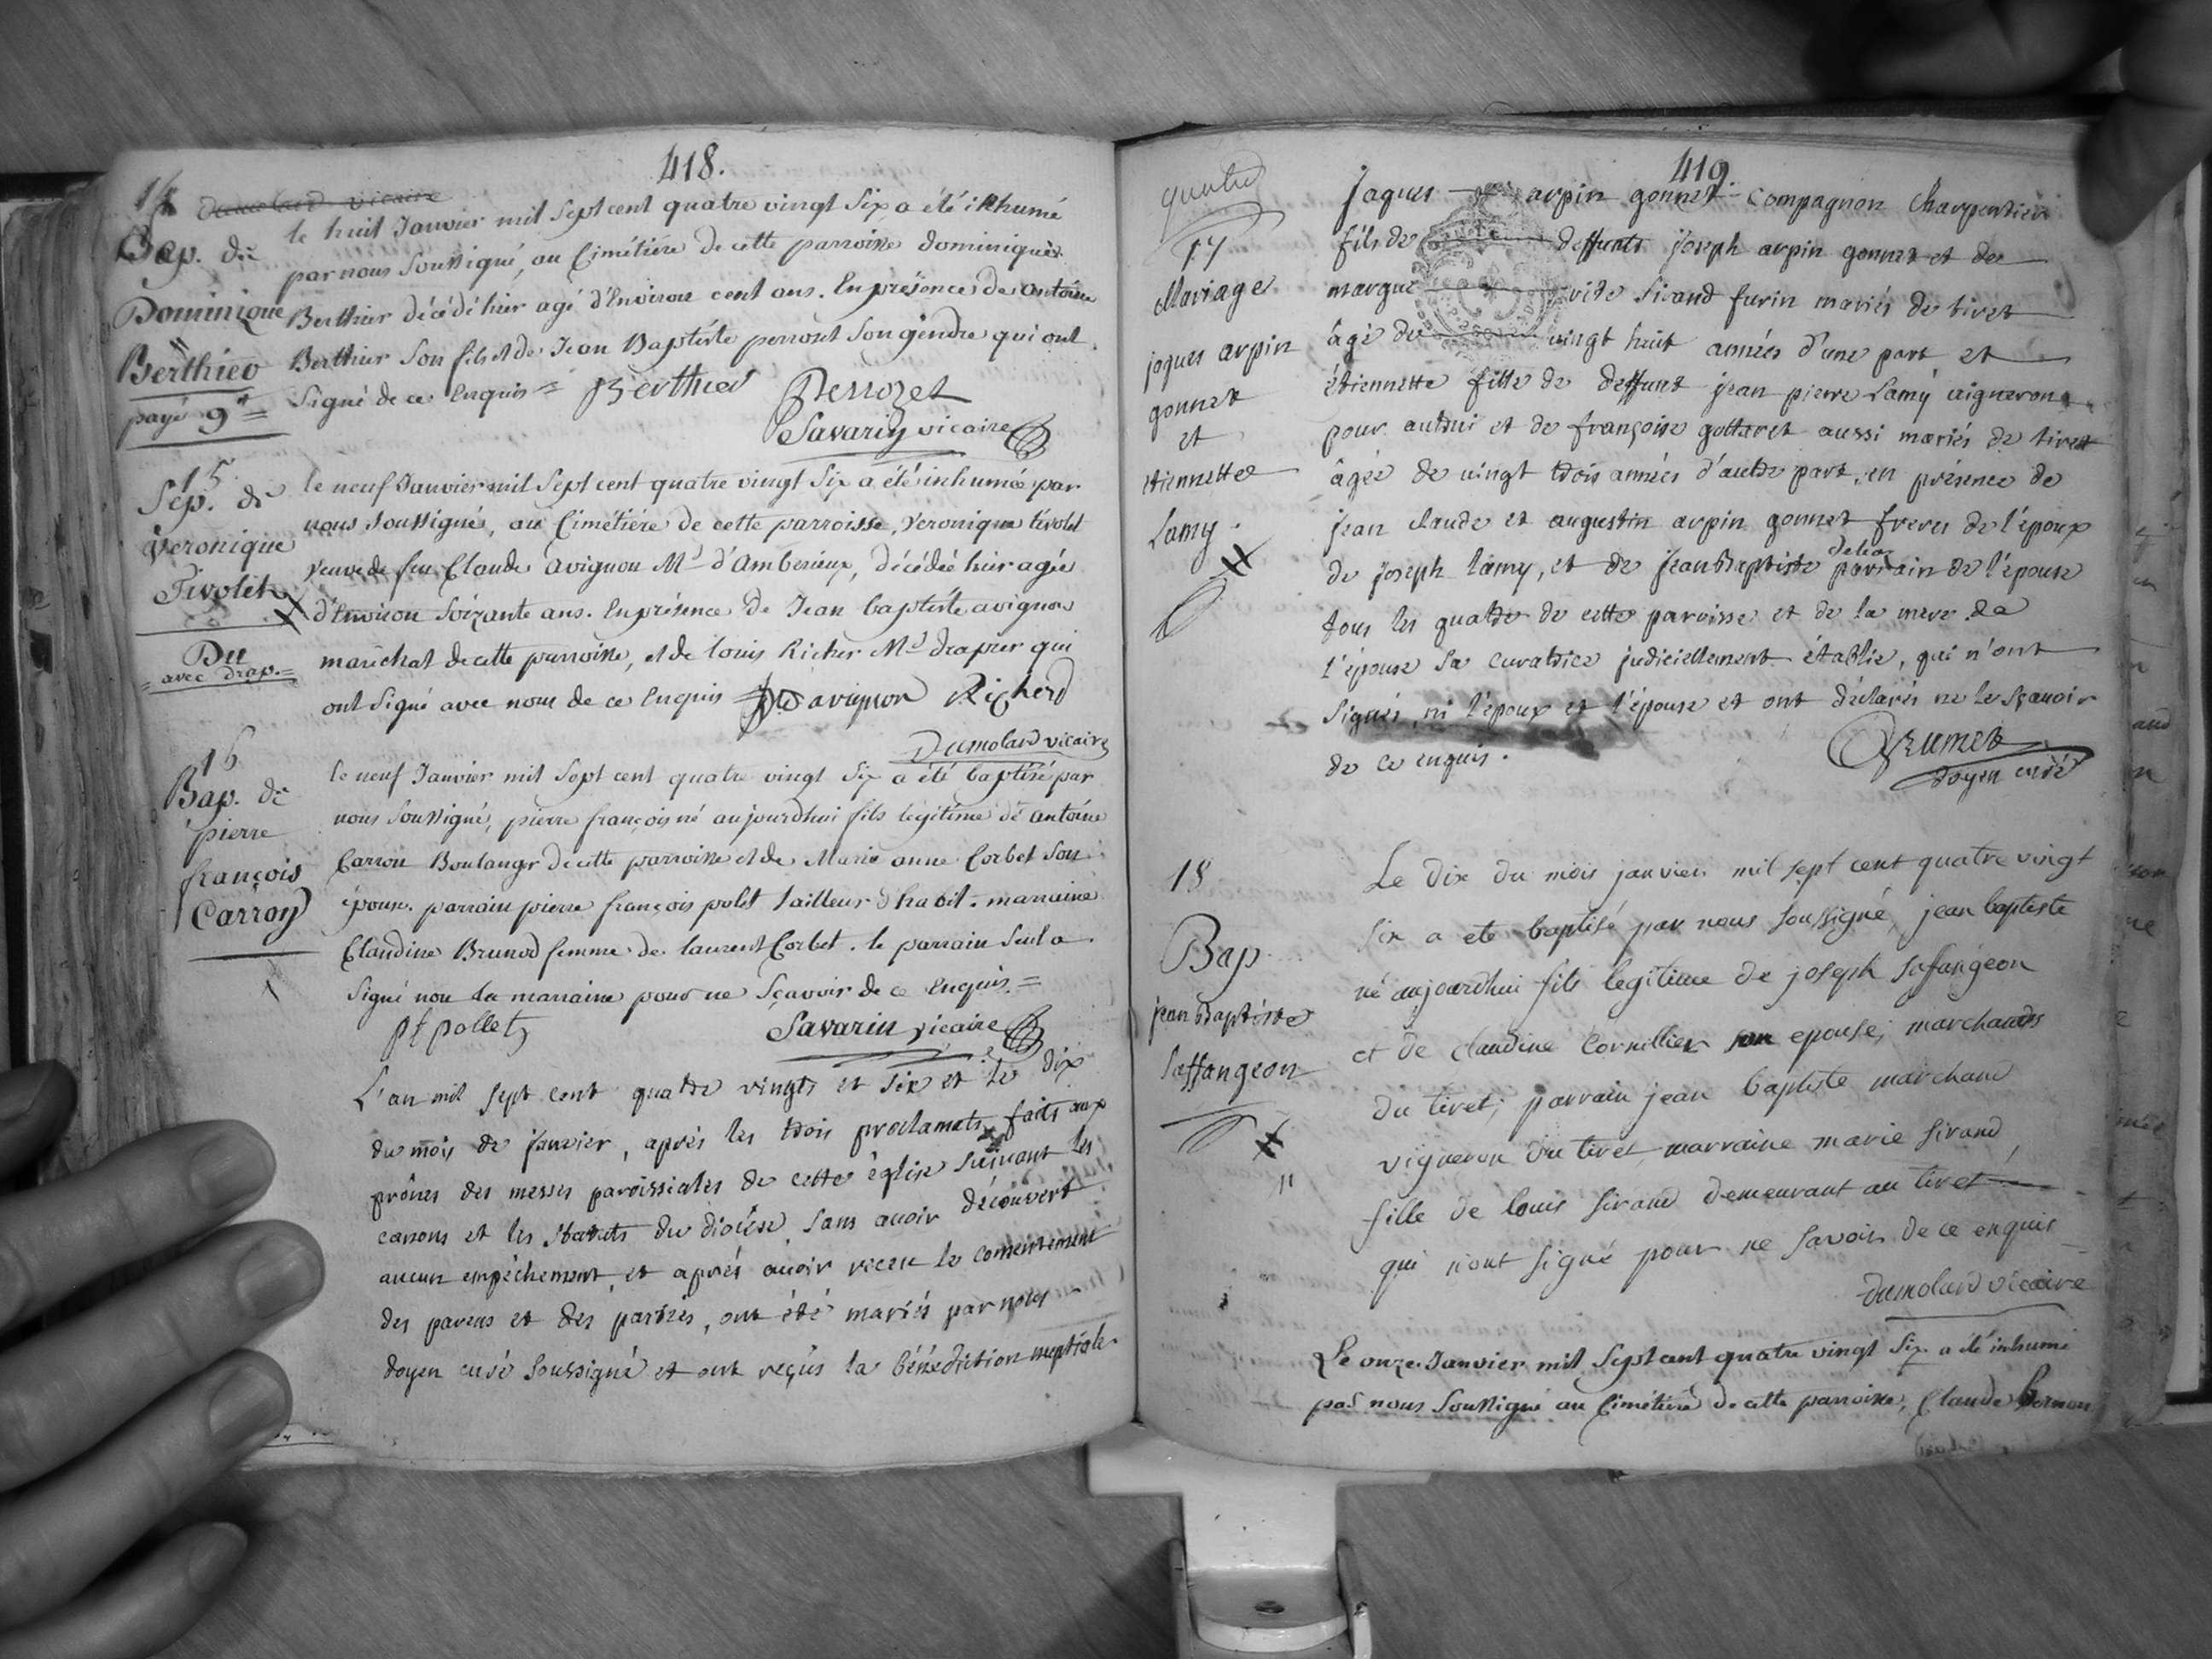 418.
14
Dumolard vicaire
Bap. de
Dominique
Berthier
payé 9
le huit Janvier mil Sept cent quatre vingt Six a été inhumé
par nous Soussigné, au Cimétière de cette parroisse dominique
Berthier décédé hier agé d'Environ cent ans. En présence de antoine
Berthier Son fils et de Jean Baptiste perrozet Son gendre qui ont
Signé de ce Enquis = Berthier Perrozet
Savarin vicaire
15
Sep. de
Veronique
Tivolet
Du
avec drap.=
le neuf Janvier mil Sept cent quatre vingt Six a été inhumée par
nous Soussigné, au Cimétière de cette parroisse, Veronique tivolet
veuve de feu Claude avignon Md d'Amberieux, décédée hier agée
d'Environ Soixante ans. En présence de Jean baptiste avignon
maréchal de cette parroisse, et de louis Richer Md drapier qui
ont Signé avec nous de ce Enquis avignon Richerd
Dumolard vicaire
16
Bap. de
pierre
françois
Carron
le neuf Janvier mil Sept cent quatre vingt Six a été baptisé par
nous Soussigné, pierre françois né aujourdhui fils légitime de antoine
Carron Boulanger de cette parroisse et de Marie anne Corbet Son
épouse. parrain pierre françois polet tailleur d'habit. marraine
Claudine Brunod femme de laurent Corbet. le parrain Seul a
Signé non la marraine pour ne Sçavoir de ce Enquis.=
pf pollet Savarin vicaire
L'an mil sept cent quatre vingts et six et le dix
du mois de janvier, après les trois proclamats faits aux
prônes des messes paroissiales de cette église suivant les
canons et les statuts du diocèse, sans avoir découvert
aucun empêchement, et après avoir receu le consentement
des parens et des parties, ont été mariés par nous
doyen curé soussigné et ont reçus la bénédiction nuptiale
419.
quatre
17
Mariage
jaques arpin
gonnet
et
etiennette
Lamy.
jaques arpin gonnet compagnon charpentier
fils de deffunts joseph arpin gonnet et de
margue rite Sirand furin mariés de tiret
âgé de vingt huit années d'une part et
étiennette fille de deffunt jean pierre Lamy vigneron
pour autrui et de françoise guttaret aussi mariés de tiret
âgée de vingt trois années d'autre part, en présence de
jean claude et augustin arpin gonnet freres de l'époux
de joseph lamy, et de jean Baptiste parrain de l'épouse
tous les quatre de cette paroisse et de la mere de
l'épouse sa curatrice judiciellement établie, qui n'ont
signés, ni l'époux et l'épouse et ont déclarés ne le sçavoir
de ce enquis.
Grumet
doyen curé
18
Bap
jean Baptiste
Saffangeon
Le dix du mois janvier mil sept cent quatre vingt
six a ete baptisé par nous soussigné, jean baptiste
né aujourdhui fils legitime de joseph saffangeon
et de claudine Cornillier son epouse, marchands
du tiret; parrain jean baptiste marchand
vigneron du tiret, marraine marie sirand,
fille de louis sirand demeurant au tiret
qui n'ont signé pour ne savoir de ce enquis
dumolard vicaire
Le onze Janvier mil Sept cent quatre vingt Six a été inhumé
par nous Soussigné au Cimétière de cette parroisse, Claude